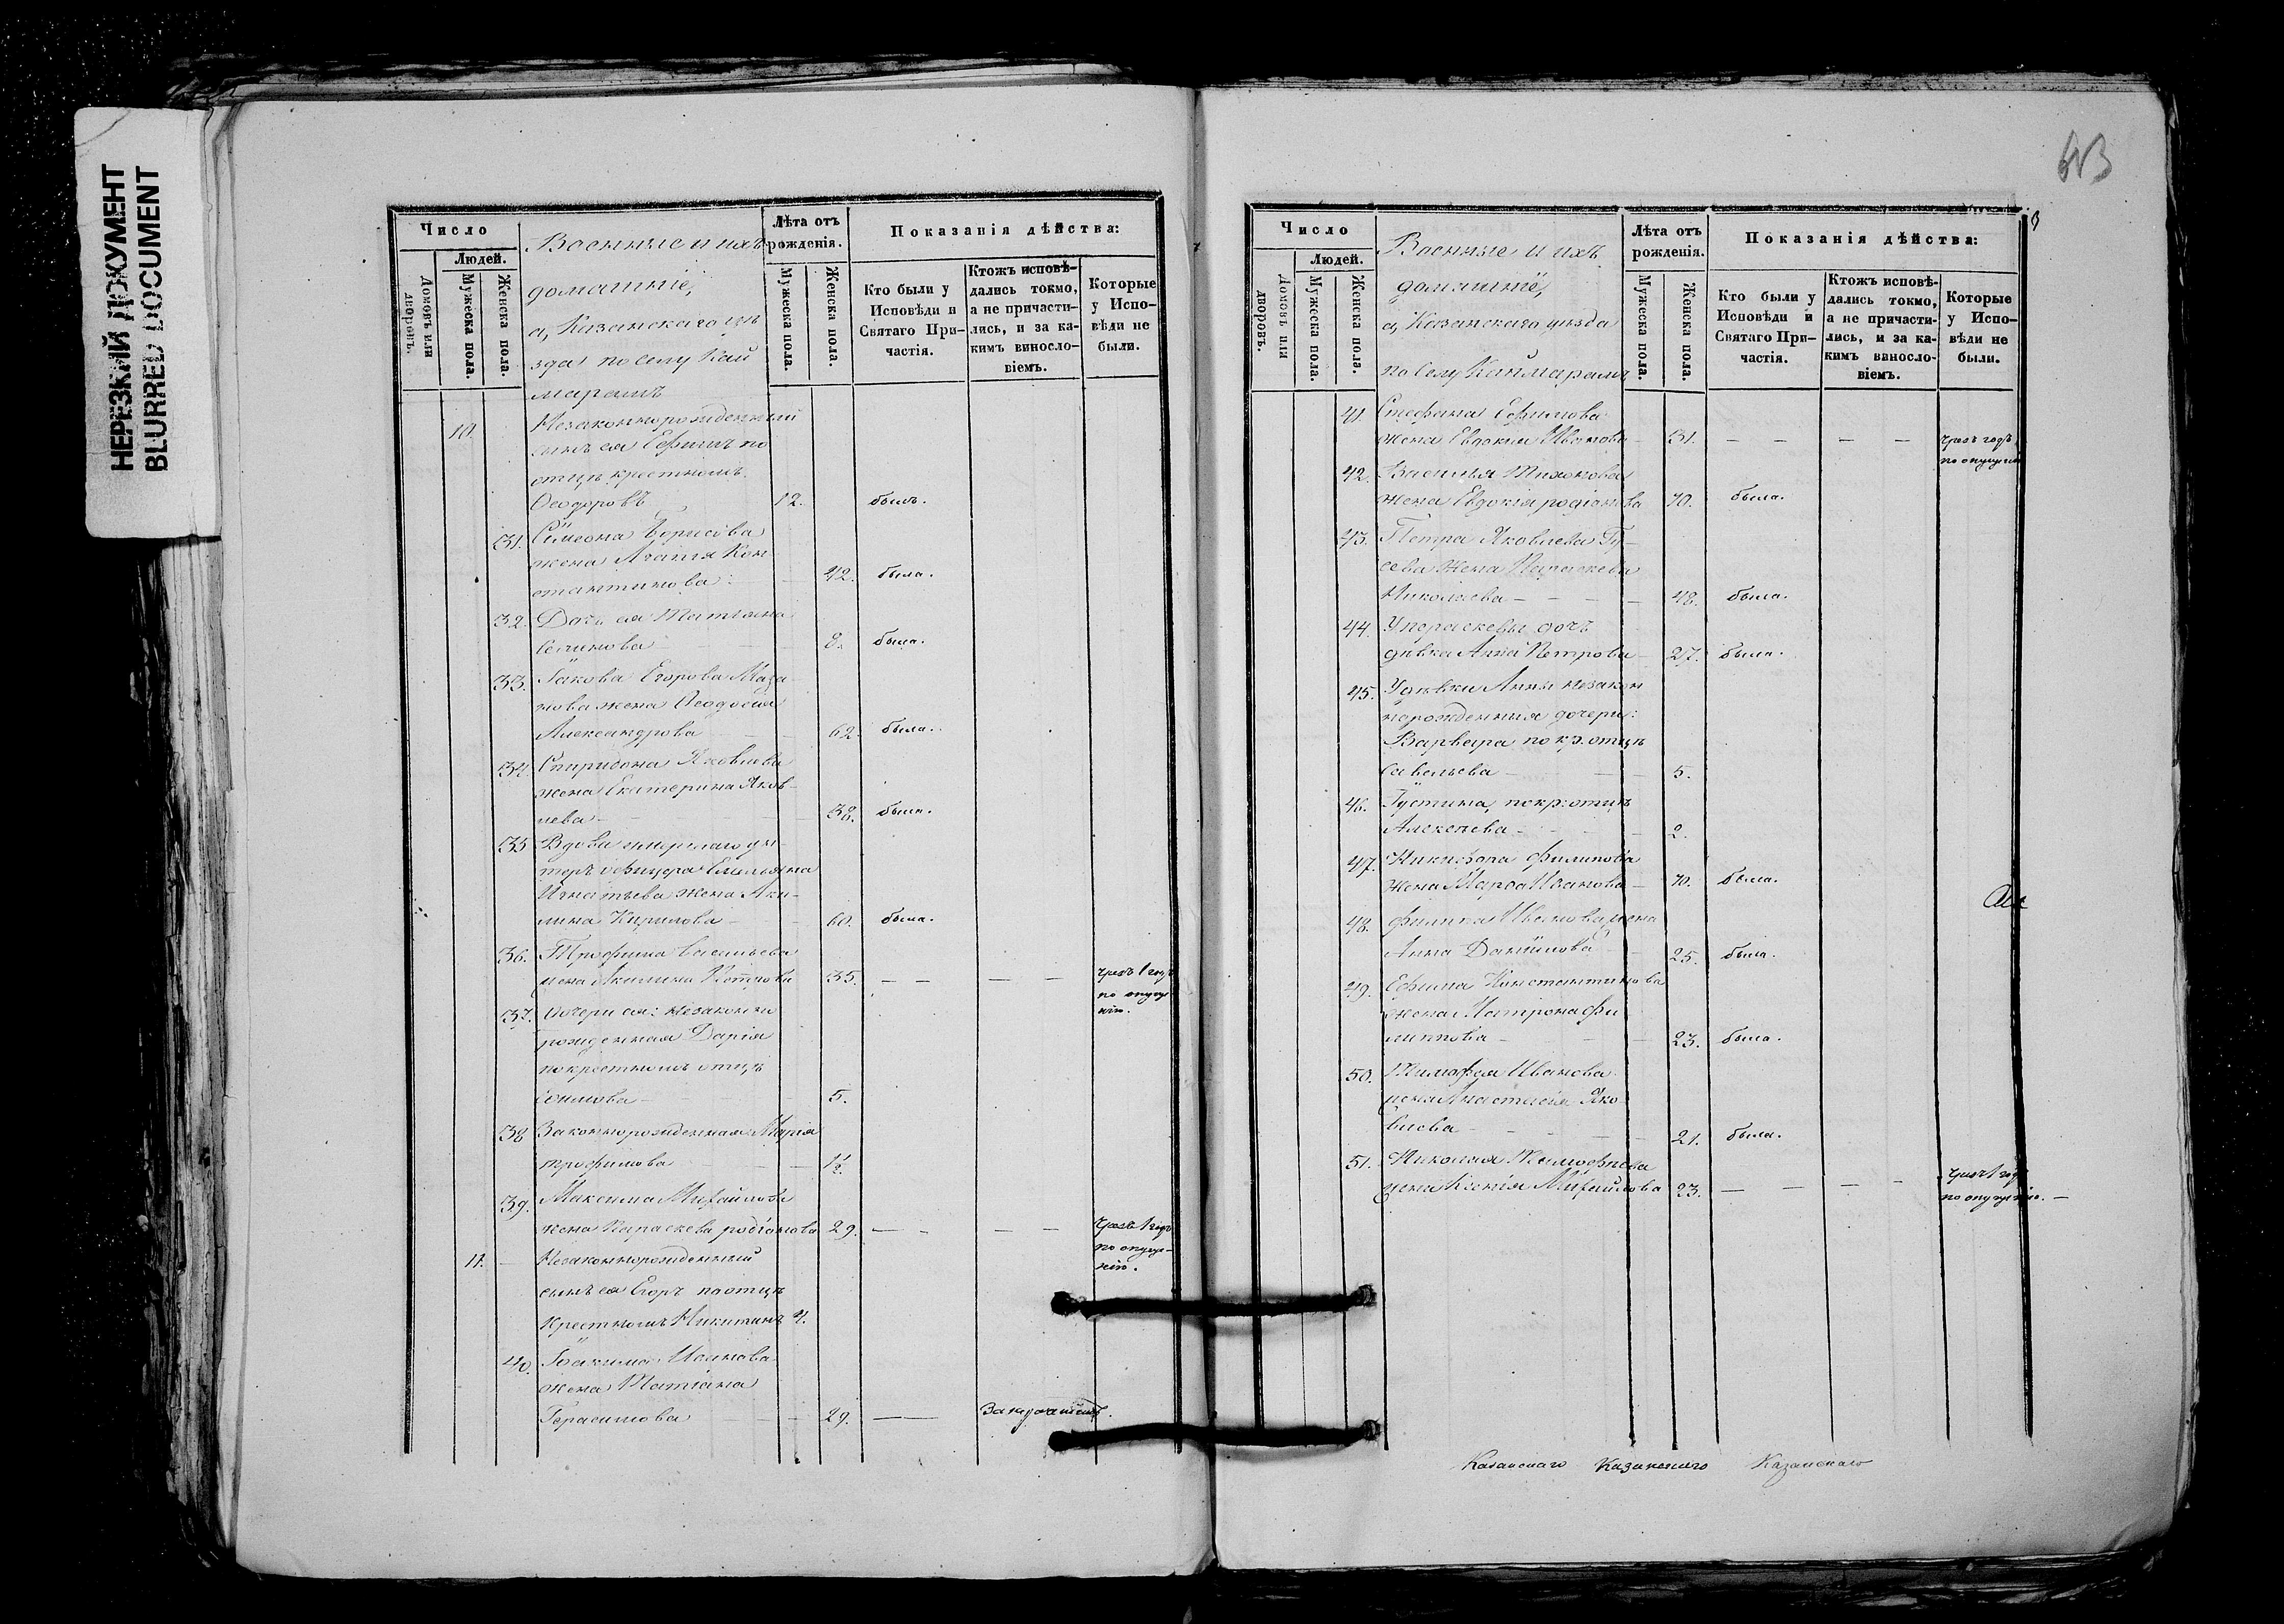 НЕРЕЗКИЙ ДОКУМЕНТ
BLURRED DOCUMENT
Число
Людей.
Домовъ или дворовъ.
Мужеска пола.
Женска пола.
Военные и ихъ
домашніе,
а, Казанскаго уѣ
зда по селу Кай
марамъ
Лѣта отъ рожденія.
Мужеска пола.
Женска пола.
Показанія дѣйства:
Кто были у Исповѣди и Святаго При-
частія.
Ктожъ исповѣ-
дались токмо,
а не причасти-
лись, и за ка-
кимъ виносло-
віемъ.
Которые
у Испо-
вѣди не
были.
10. Незаконнорожденный
сынъ ея Ефимъ по
отцѣ крестномъ
Ѳеодоровъ 12. былъ.
31. Симеона Борисова
жена Агапія Кон
стантинова 42. была.
32. Дочь ея Татіана
Семенова 8. была.
33. Іакова Егорова Маза
нова жена Ѳеодосія
Александрова 62. была.
34. Спиридона Яковлева
жена Екатерина Яков-
лева 38. была.
35 Вдова умершаго ун-
теръ офицера Емельяна
Игнатьева жена Аку-
лина Кирилова 60. была.
36. Трофима Васильева
жена Акилина Петрова 35. — — — — чрезъ 1 годъ
по опуще-
нію.
37. Дочери ея: незаконно
рожденная Дарія
по крестномъ отцѣ
Ефимова 5.
38 Законнорожденная Марія
Трофимова 1½
39. Максима Михайлова
жена Параскева Родіонова 29. — — — — чрезъ 1 годъ
по опуще-
нію.
11. Незаконнорожденный
сынъ ея Егоръ по отцѣ
крестномъ Никитинъ 4.
40. Іоакима Иванова
жена Татіана
Герасимова 29. — —
63
Число
Людей.
Домовъ или дворовъ.
Мужеска пола.
Женска пола.
Военные и ихъ
домашніе,
а, Казанскаго уѣзда
по Селу Каймарамъ
Лѣта отъ
рожденія.
Мужеска пола.
Женска пола.
Показанія дѣйства:
Кто были у
Исповѣди и
Святаго При-
частія.
Ктожъ исповѣ-
дались токмо,
а не причасти-
лись, и за ка-
кимъ виносло-
віемъ.
Которые
у Испо-
вѣди не
были.
41. Стефана Ефимова
жена Евдокия Иванова 31. — — — — чрезъ годъ
по опущенію
42. Василья Тихонова
жена Евдокія Родіонова 70. была.
43. Петра Яковлева Гу-
сева жена Параскева
Николаева 48. была.
44. У Параскевы дочь
дѣвка Анна Петрова 27. была.
45. У дѣвки Анны незакон
норожденныя дочери:
Варвара по кр. отцѣ
Савельева 5.
46. Іустина, по кр: отцѣ
Алексѣева 2.
47. Никифора Филипова
жена Марѳа Иванова 70. была.
48. Филипа Иванова жена
Анна Данилова 25. была.
49. Ефима Константинова
жена Матрона Фи
липпова 23. была.
50. Тимофея Иванова
жена Анастасія Яко
влева 21. была.
51. Николая Тимофѣева
жена Ксенія Михайлова 23. — — — — чрезъ 1 годъ
по опущенію. —
Казанскаго Казанскаго Казанскаго